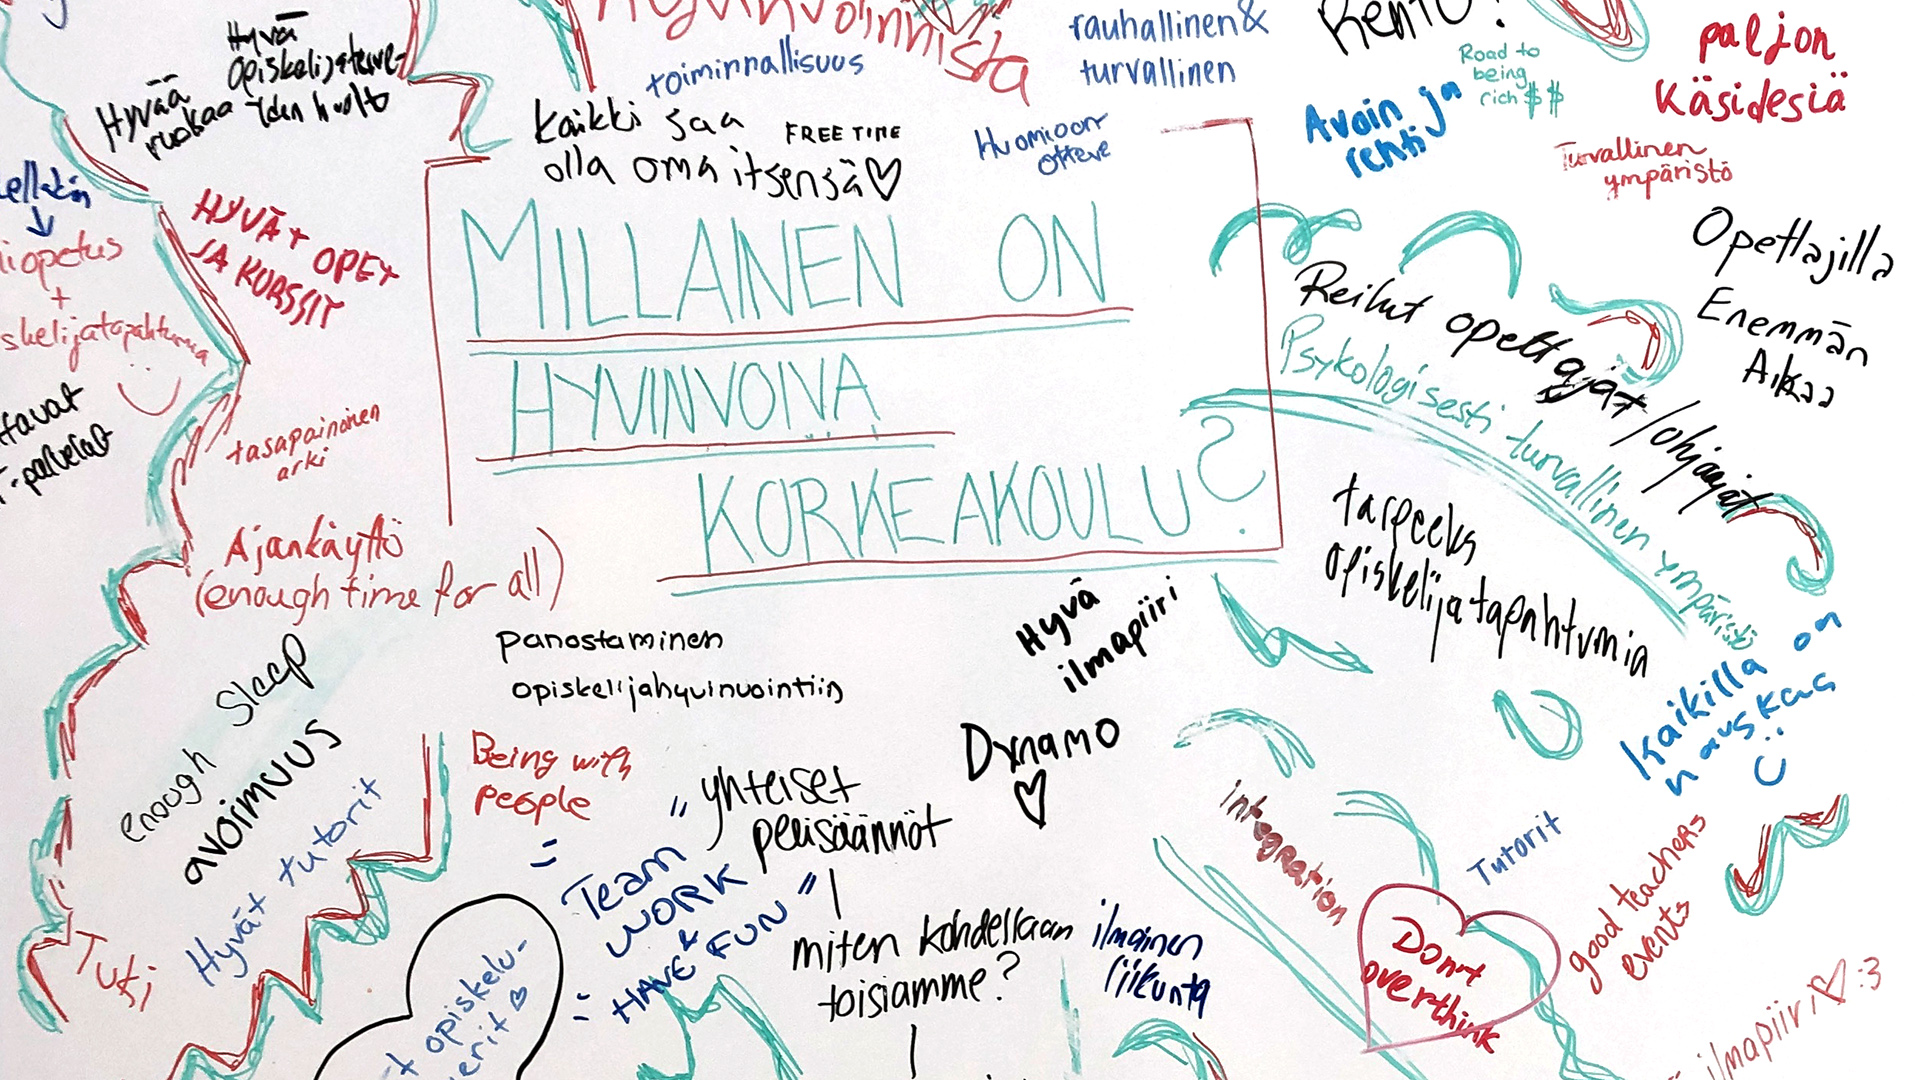 Hyvinvoinnista
toiminnallisuus
rauhallinen &
turvallinen
Rento!
Road to
being
rich $$
paljon
Käsidesiä
Hyvä
Opiskelijaterve-
Hyvää
ruokaa
Kaikki saa
olla oma itsensä ♡
FREE TIME
Avoin ja
rehti
Turvallinen
ympäristö
iopetus
+
skelijatapahtumia
HYVÄT OPET
JA KURSSIT
MILLAINEN ON
HYVINVOIVA
KORKEAKOULU?
Opettajilla
Enemmän
Aikaa
Reilut opettajat / ohjaajat
Psykologisesti turvallinen ympäristö
tavat
T-palvelut
tasapainoinen
arki
Ajankäyttö
(enough time for all)
tarpeeks
opiskelijatapahtumia
enough sleep
avoimuus
Hyvät tutorit
Tuki
panostaminen
opiskelijahyvinvointiin
Hyvä
ilmapiiri
Dynamo
♡
kaikilla on
hauskaa
Being with
people
=
Team
WORK
&
HAVE FUN
=
"yhteiset
pelisäännöt"
miten kohdellaan
toisiamme?
ilmainen
liikunta
integration
Tutorit
good teachers
events
Don't
overthink
t opiskelu-
erit ♡
ilmapiiri ♡ :3